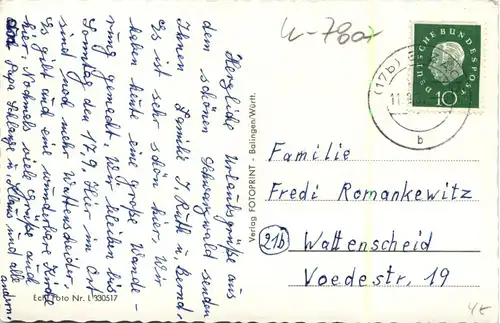 Herzliche Urlaubsgrüße aus
dem schönen Schwarzwald senden
Ihnen Familie J. Rutt u. Bernd.
Es ist sehr schön hier. Wir
haben heute eine große Wande-
rung gemacht. Wir bleiben bis
Sonntag den 17.9. Hier im Ort
sind noch mehr Wattenscheider.
Es gibt und eine wunderbare
hier. Nochmals viele Grüße auch
Papa u. Klaus und alle
andern.
Echt Foto Nr. L 330517
Verlag FOTOPRINT - Balingen/Württ.
DEUTSCHE BUNDESPOST
10
(17b)
11.
b
Familie
Fredi Romankewitz
21b Wattenscheid
Voedestr. 19